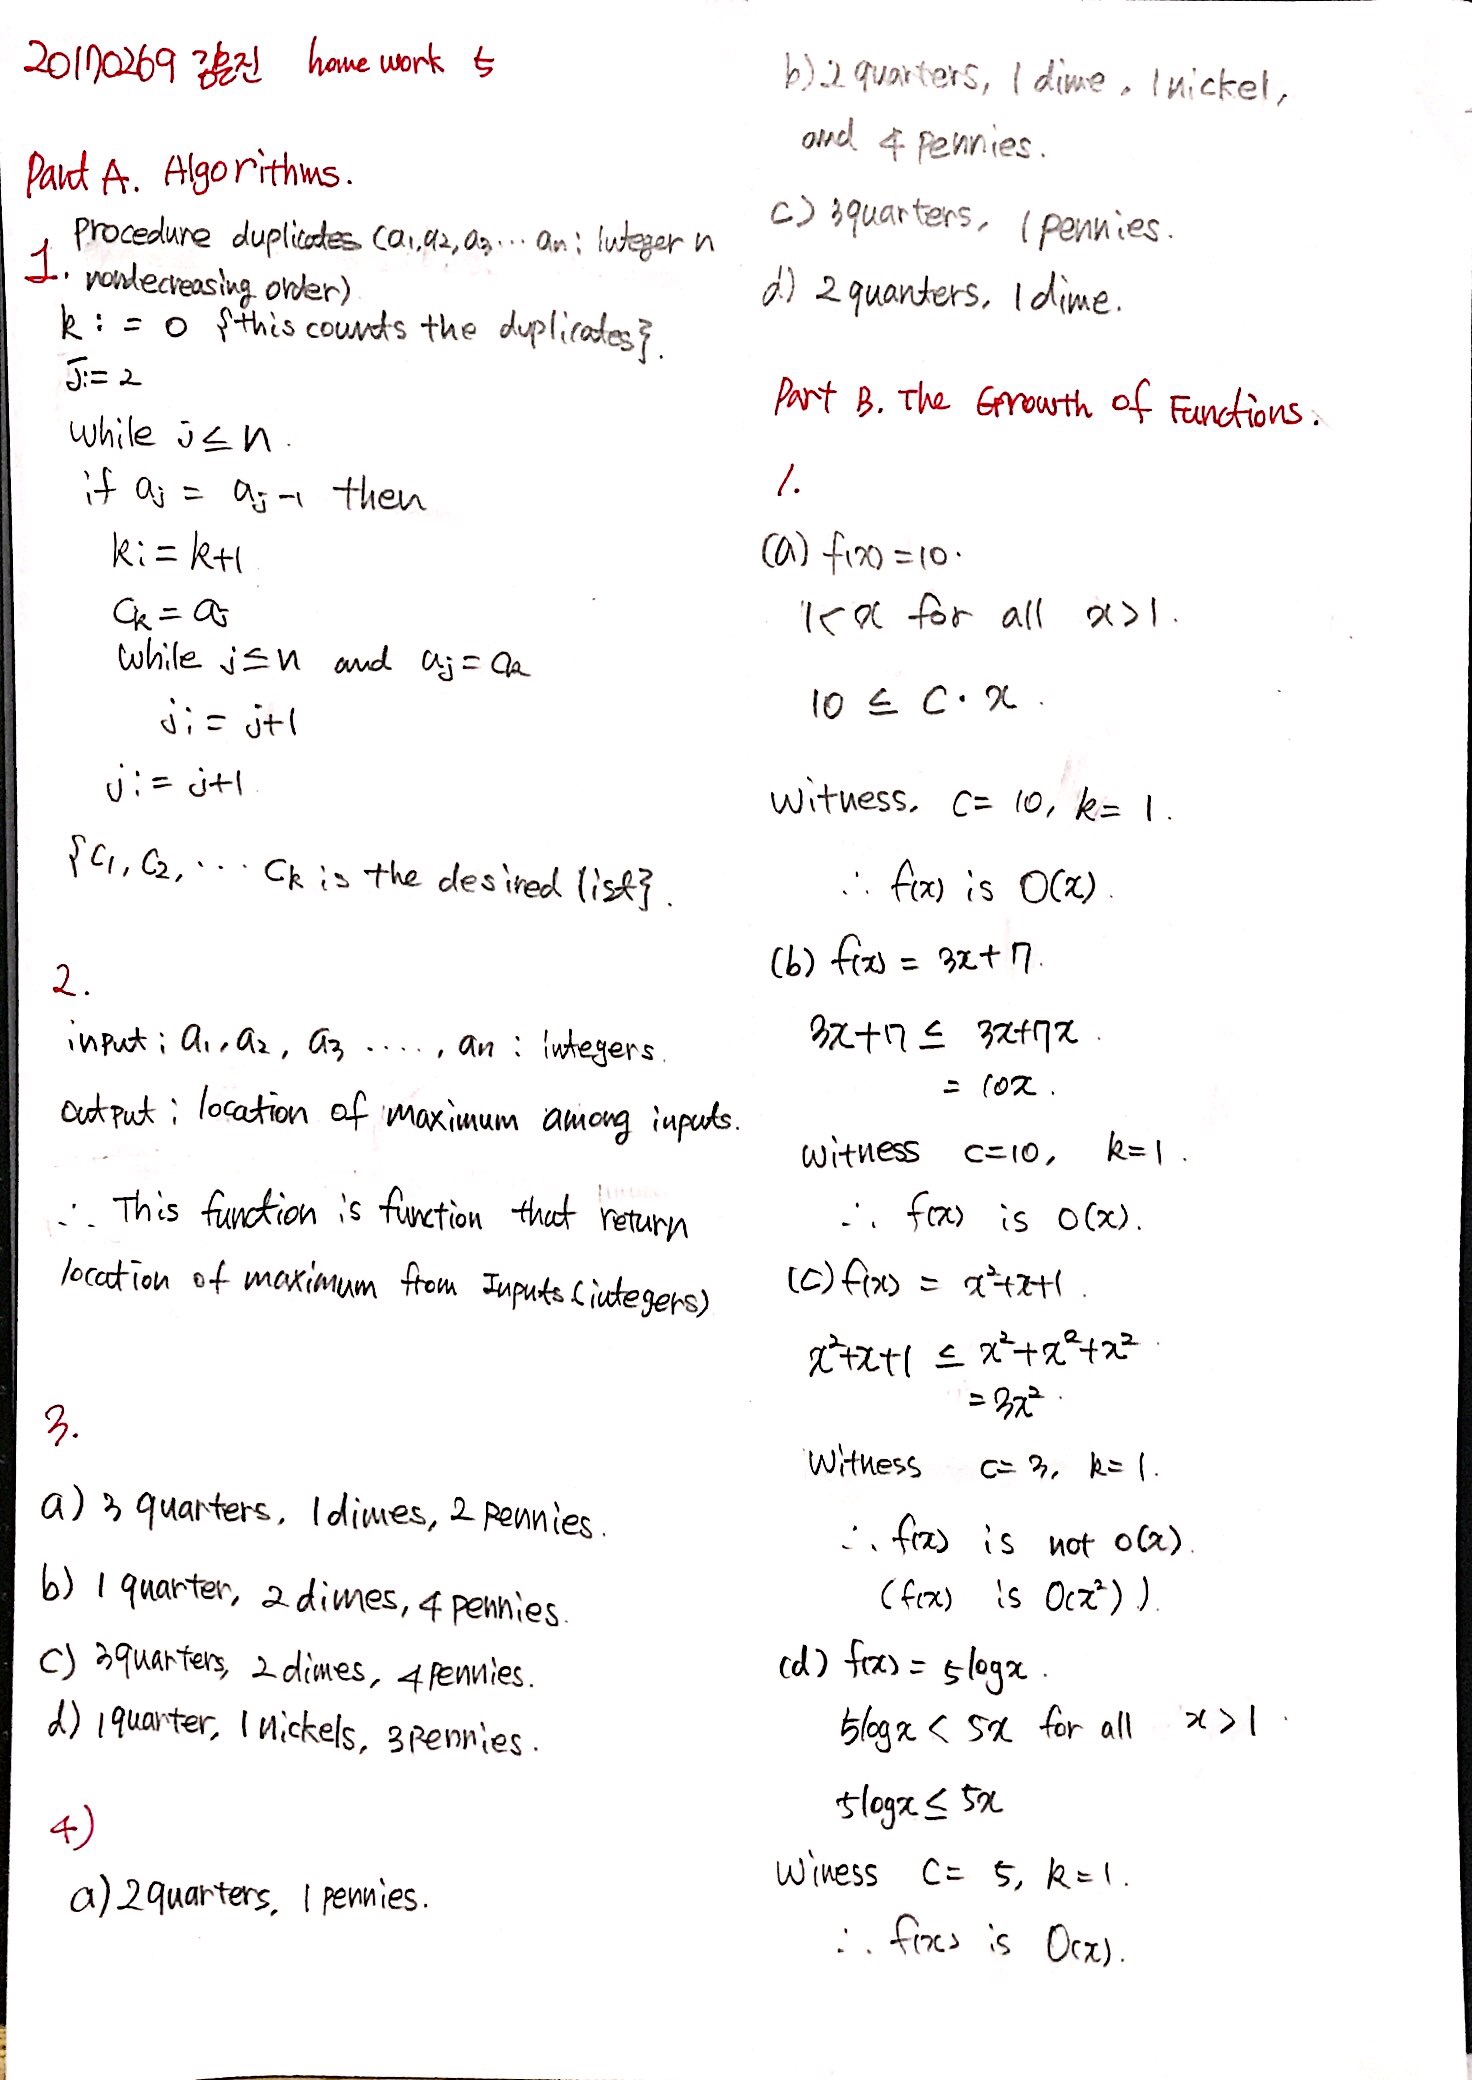 20170269 김은진 homework 5
Part A. Algorithms.
1. Procedure duplicates (a1, a2, a3 ... an : integer n
nondecreasing order)
k := 0 {this counts the duplicates}.
j := 2
while j ≤ n.
if aj = aj-1 then
k := k+1
Ck = aj
while j ≤ n and aj = Ck
j := j+1
j := j+1
{C1, C2, ... Ck is the desired list}.
2.
input : a1, a2, a3 ...., an : integers.
output : location of maximum among inputs.
∴ This function is function that return
location of maximum from Inputs (integers)
3.
a) 3 quarters, 1 dimes, 2 pennies.
b) 1 quarter, 2 dimes, 4 pennies.
c) 3 quarters, 2 dimes, 4 pennies.
d) 1 quarter, 1 nickels, 3 pennies.
4)
a) 2 quarters, 1 pennies.
b) 2 quarters, 1 dime, 1 nickel,
and 4 pennies.
c) 3 quarters, 1 pennies.
d) 2 quarters, 1 dime.
Part B. The Growth of Functions.
1.
(a) f(x) = 10.
1 < x for all x > 1.
10 ≤ C · x.
witness. C = 10, k = 1.
∴ f(x) is O(x).
(b) f(x) = 3x + 7.
3x + 7 ≤ 3x + 7x.
= 10x.
witness c = 10, k = 1.
∴ f(x) is O(x).
(c) f(x) = x² + x + 1.
x² + x + 1 ≤ x² + x² + x²
= 3x².
Witness c = 3, k = 1.
∴ f(x) is not O(x).
(f(x) is O(x²)).
(d) f(x) = 5logx.
5logx < 5x for all x > 1.
5logx ≤ 5x
Winess C = 5, k = 1.
∴ f(x) is O(x).